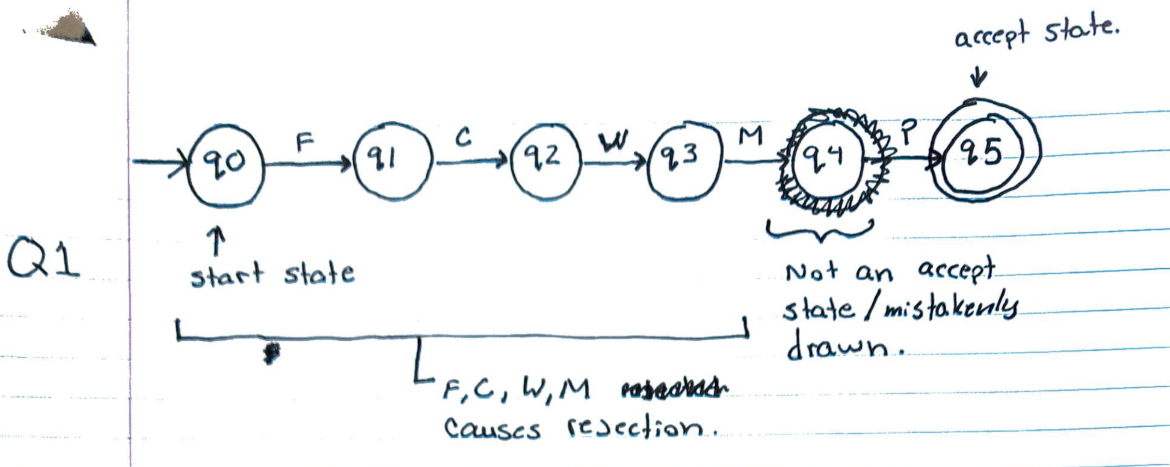 accept state.
F C W M P
q0 q1 q2 q3 q4 q5
Q1
start state
Not an accept
state/mistakenly
drawn.
F, C, W, M
causes rejection.